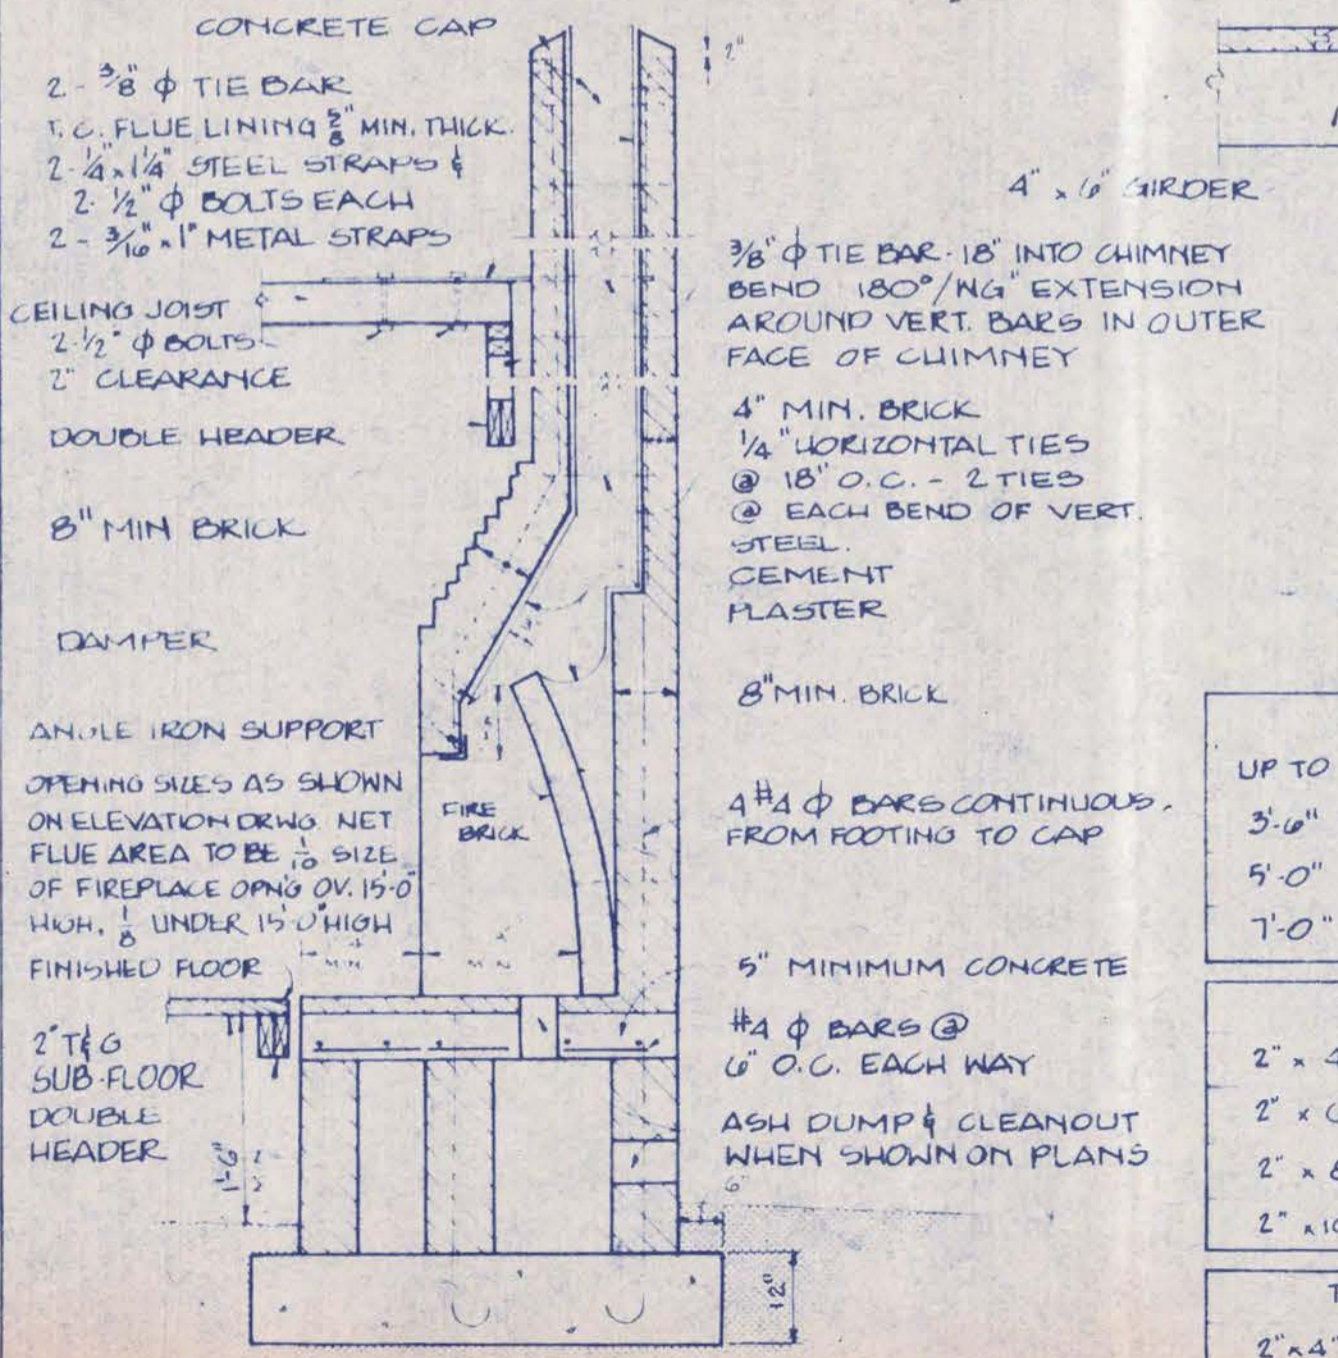 CONCRETE CAP
2 - 3/8" ϕ TIE BAR
T.C. FLUE LINING 5/8" MIN. THICK.
2 - 1/4" x 1 1/4" STEEL STRAPS &
2 - 1/2" ϕ BOLTS EACH
2 - 3/16" x 1" METAL STRAPS
CEILING JOIST
2 - 1/2" ϕ BOLTS
2" CLEARANCE
DOUBLE HEADER
8" MIN BRICK
DAMPER
ANGLE IRON SUPPORT
OPENING SIZES AS SHOWN
ON ELEVATION DRWG NET
FLUE AREA TO BE 1/10 SIZE
OF FIREPLACE OPN'G OV. 15'-0"
HIGH, 1/8 UNDER 15'-0" HIGH
FINISHED FLOOR
2" T&G
SUB-FLOOR
DOUBLE
HEADER
1'-6"
FIRE
BRICK
2"
4" x 6" GIRDER
3/8" ϕ TIE BAR - 18" INTO CHIMNEY
BEND 180°/WG" EXTENSION
AROUND VERT. BARS IN OUTER
FACE OF CHIMNEY
4" MIN. BRICK
1/4" HORIZONTAL TIES
@ 18" O.C. - 2 TIES
@ EACH BEND OF VERT.
STEEL.
CEMENT
PLASTER
8" MIN. BRICK
4 #4 ϕ BARS CONTINUOUS.
FROM FOOTING TO CAP
5" MINIMUM CONCRETE
#4 ϕ BARS @
6" O.C. EACH WAY
ASH DUMP & CLEANOUT
WHEN SHOWN ON PLANS
6"
12"
UP TO
3'-6"
5'-0"
7'-0"
2" x 4
2" x 6
2" x 8
2" x 10
T
2" x 4"